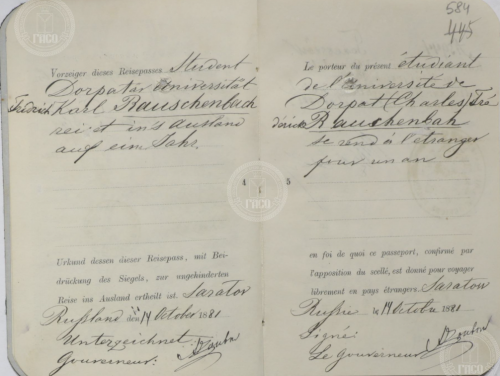 584
445
Vorzeiger dieses Reisepasses Student
Dorpater Universität
Fredrich Karl Rauschenbach
reist in's Ausland
auf ein Jahr.
4
Urkund dessen dieser Reisepass, mit Bei-
drückung des Siegels, zur ungehinderten
Reise ins Ausland ertheilt ist. Saratov
Rußland den 14 October 1881
Unterzeichnet:
Gouverneur:
Le porteur du présent étudiant
de l'Université de
Dorpat (Charles) Fré
derick Rauschenbah
se rend à l'étranger
pour un an
5
en foi de quoi ce passeport, confirmé par
l'apposition du scellé, est donné pour voyager
librement en pays étrangers. Saratow
Russie le 14 Octobre 1881
Signé:
Le Gouverneur